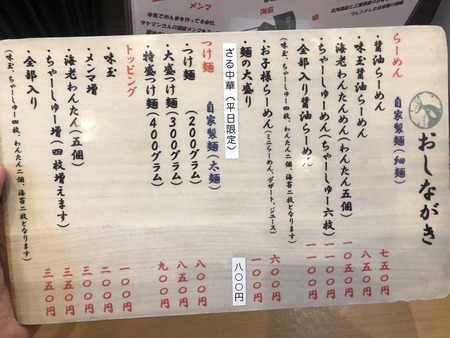 おしながき
らーめん 自家製麺(細麺)
・醤油らーめん 七五〇円
・味玉醤油らーめん 八五〇円
・海老わんたんめん(わんたん五個) 一〇五〇円
・ちゃーしゅーめん(ちゃーしゅー六枚) 一一〇〇円
・全部入り醤油らーめん 一一〇〇円
(味玉、ちゃーしゅー四枚、わんたん二個、海苔二枚となります)
・お子様らーめん(ミニらーめん、デザート、ジュース) 六〇〇円
・麺の大盛り 一〇〇円
ざる中華(平日限定) 八〇〇円
つけ麺 自家製麺(太麺)
・つけ麺(200グラム) 八〇〇円
・大盛つけ麺(300グラム) 八五〇円
・特盛つけ麺(400グラム) 九〇〇円
トッピング
・味玉 一〇〇円
・メンマ増 二〇〇円
・海老わんたん(五個) 三〇〇円
・ちゃーしゅー増(四枚増えます) 三五〇円
・全部入り 三五〇円
(味玉、ちゃーしゅー四枚、わんたん二個、海苔二枚となります)
メンマ
海苔